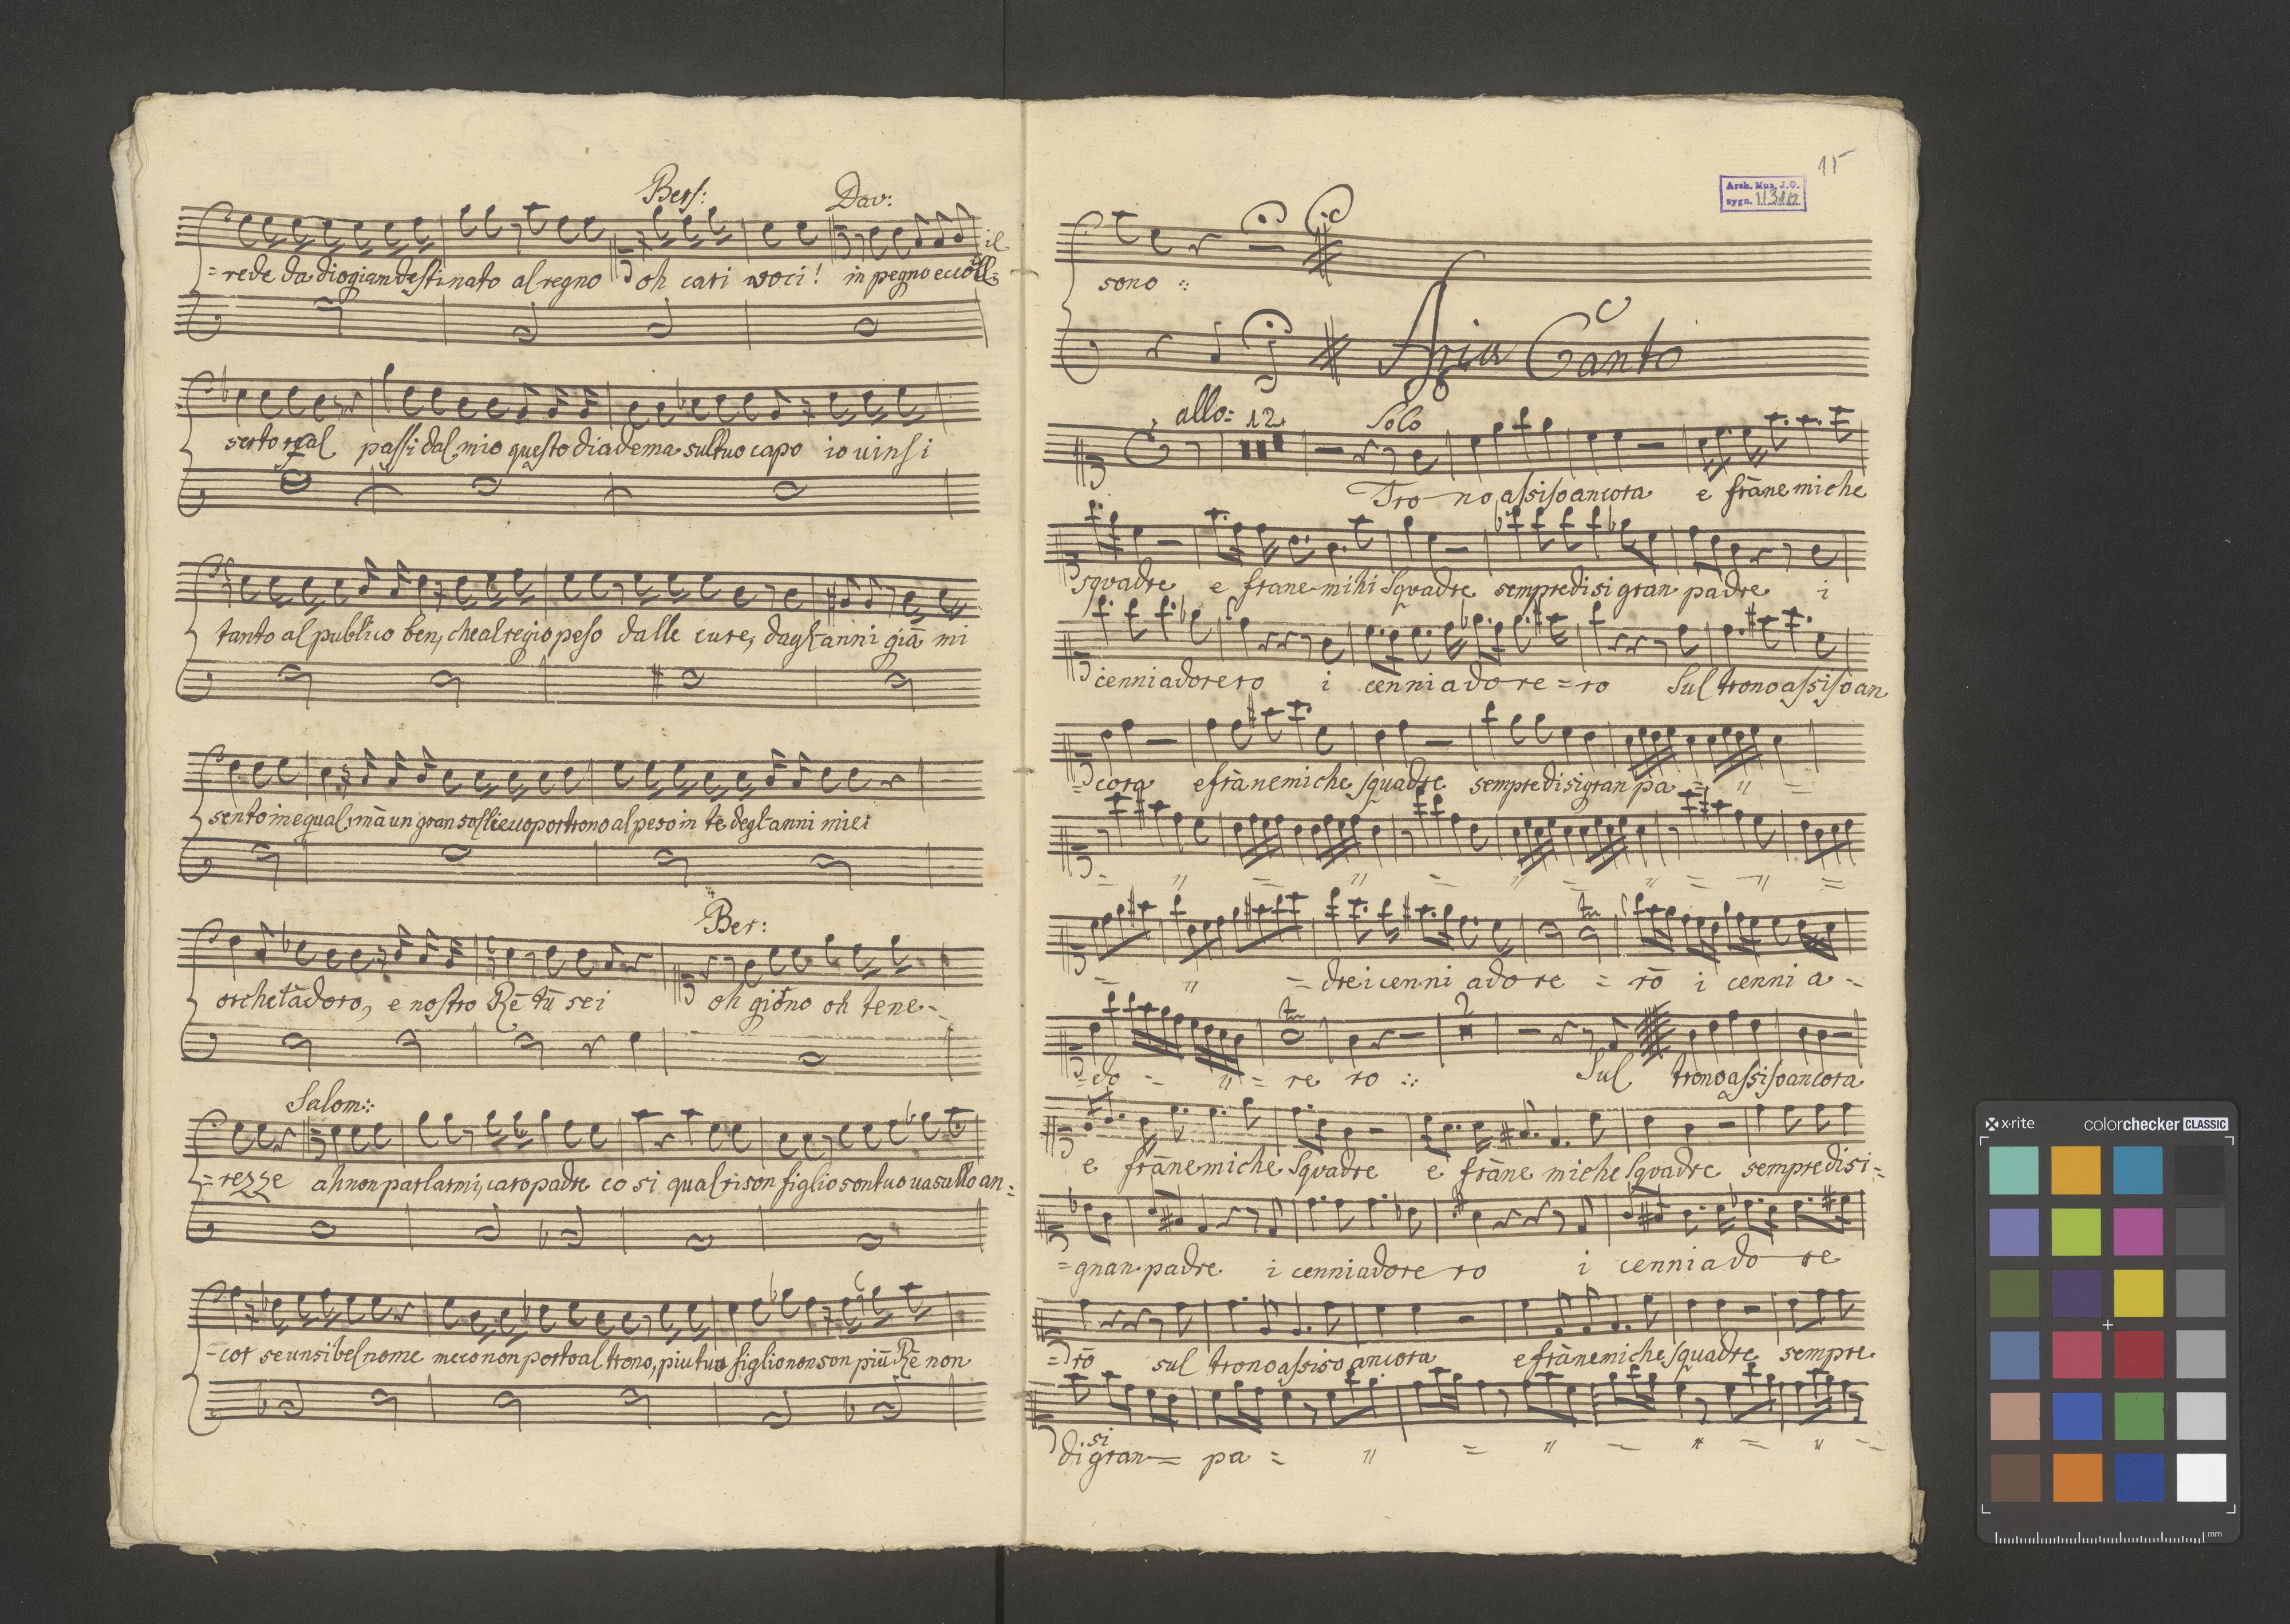 Bers: Dav:
il
=rede da diogiam destinato al regno oh cari voci! in pegno eccoll=
serto real passi dal mio questo diadema sul tuo capo io uinsi
tanto al publico ben, che al regio peso dalle cure, dagl'anni già mi
sento inequal, mà un gran sollieuo portrono al peso in tè degl'anni miei
Ber:
or che t'àdoro, e nostro Rè tù sei oh giorno oh tene-
Salom:
=rezze ah non parlarmi, caro padre co si qual ri son figlio son tuo uasallo an=
=cor se un si bel nome meco non porto al trono, piu tuo figlio non son più Rè non
15
Arch. Muz. J.G.
sygn.
sono :
Aria Canto
allo: 12 Solo
Tro-no assiso ancora e frà nemiche
squadre e fra nemihi squadre sempre di si gran padre i
cenni adorero i cenni adore=ro Sul trono assiso an
=cora e frà nemiche squadre sempre di si gran pa = " =
= " = " = " = " = " =
= " = dre i cenni adore = rò i cenni a-
2
=do - " = re ro : Sul trono assiso ancora
e frà nemiche squadre e frà ne miche squadre sempre di si=
=gnan padre i cenni adore ro i cenni ado re
=rò sul trono assiso ancora e frà nemiche squadre sempre
si
di gran= pa = " = " = " = " =
x-rite colorchecker CLASSIC
mm